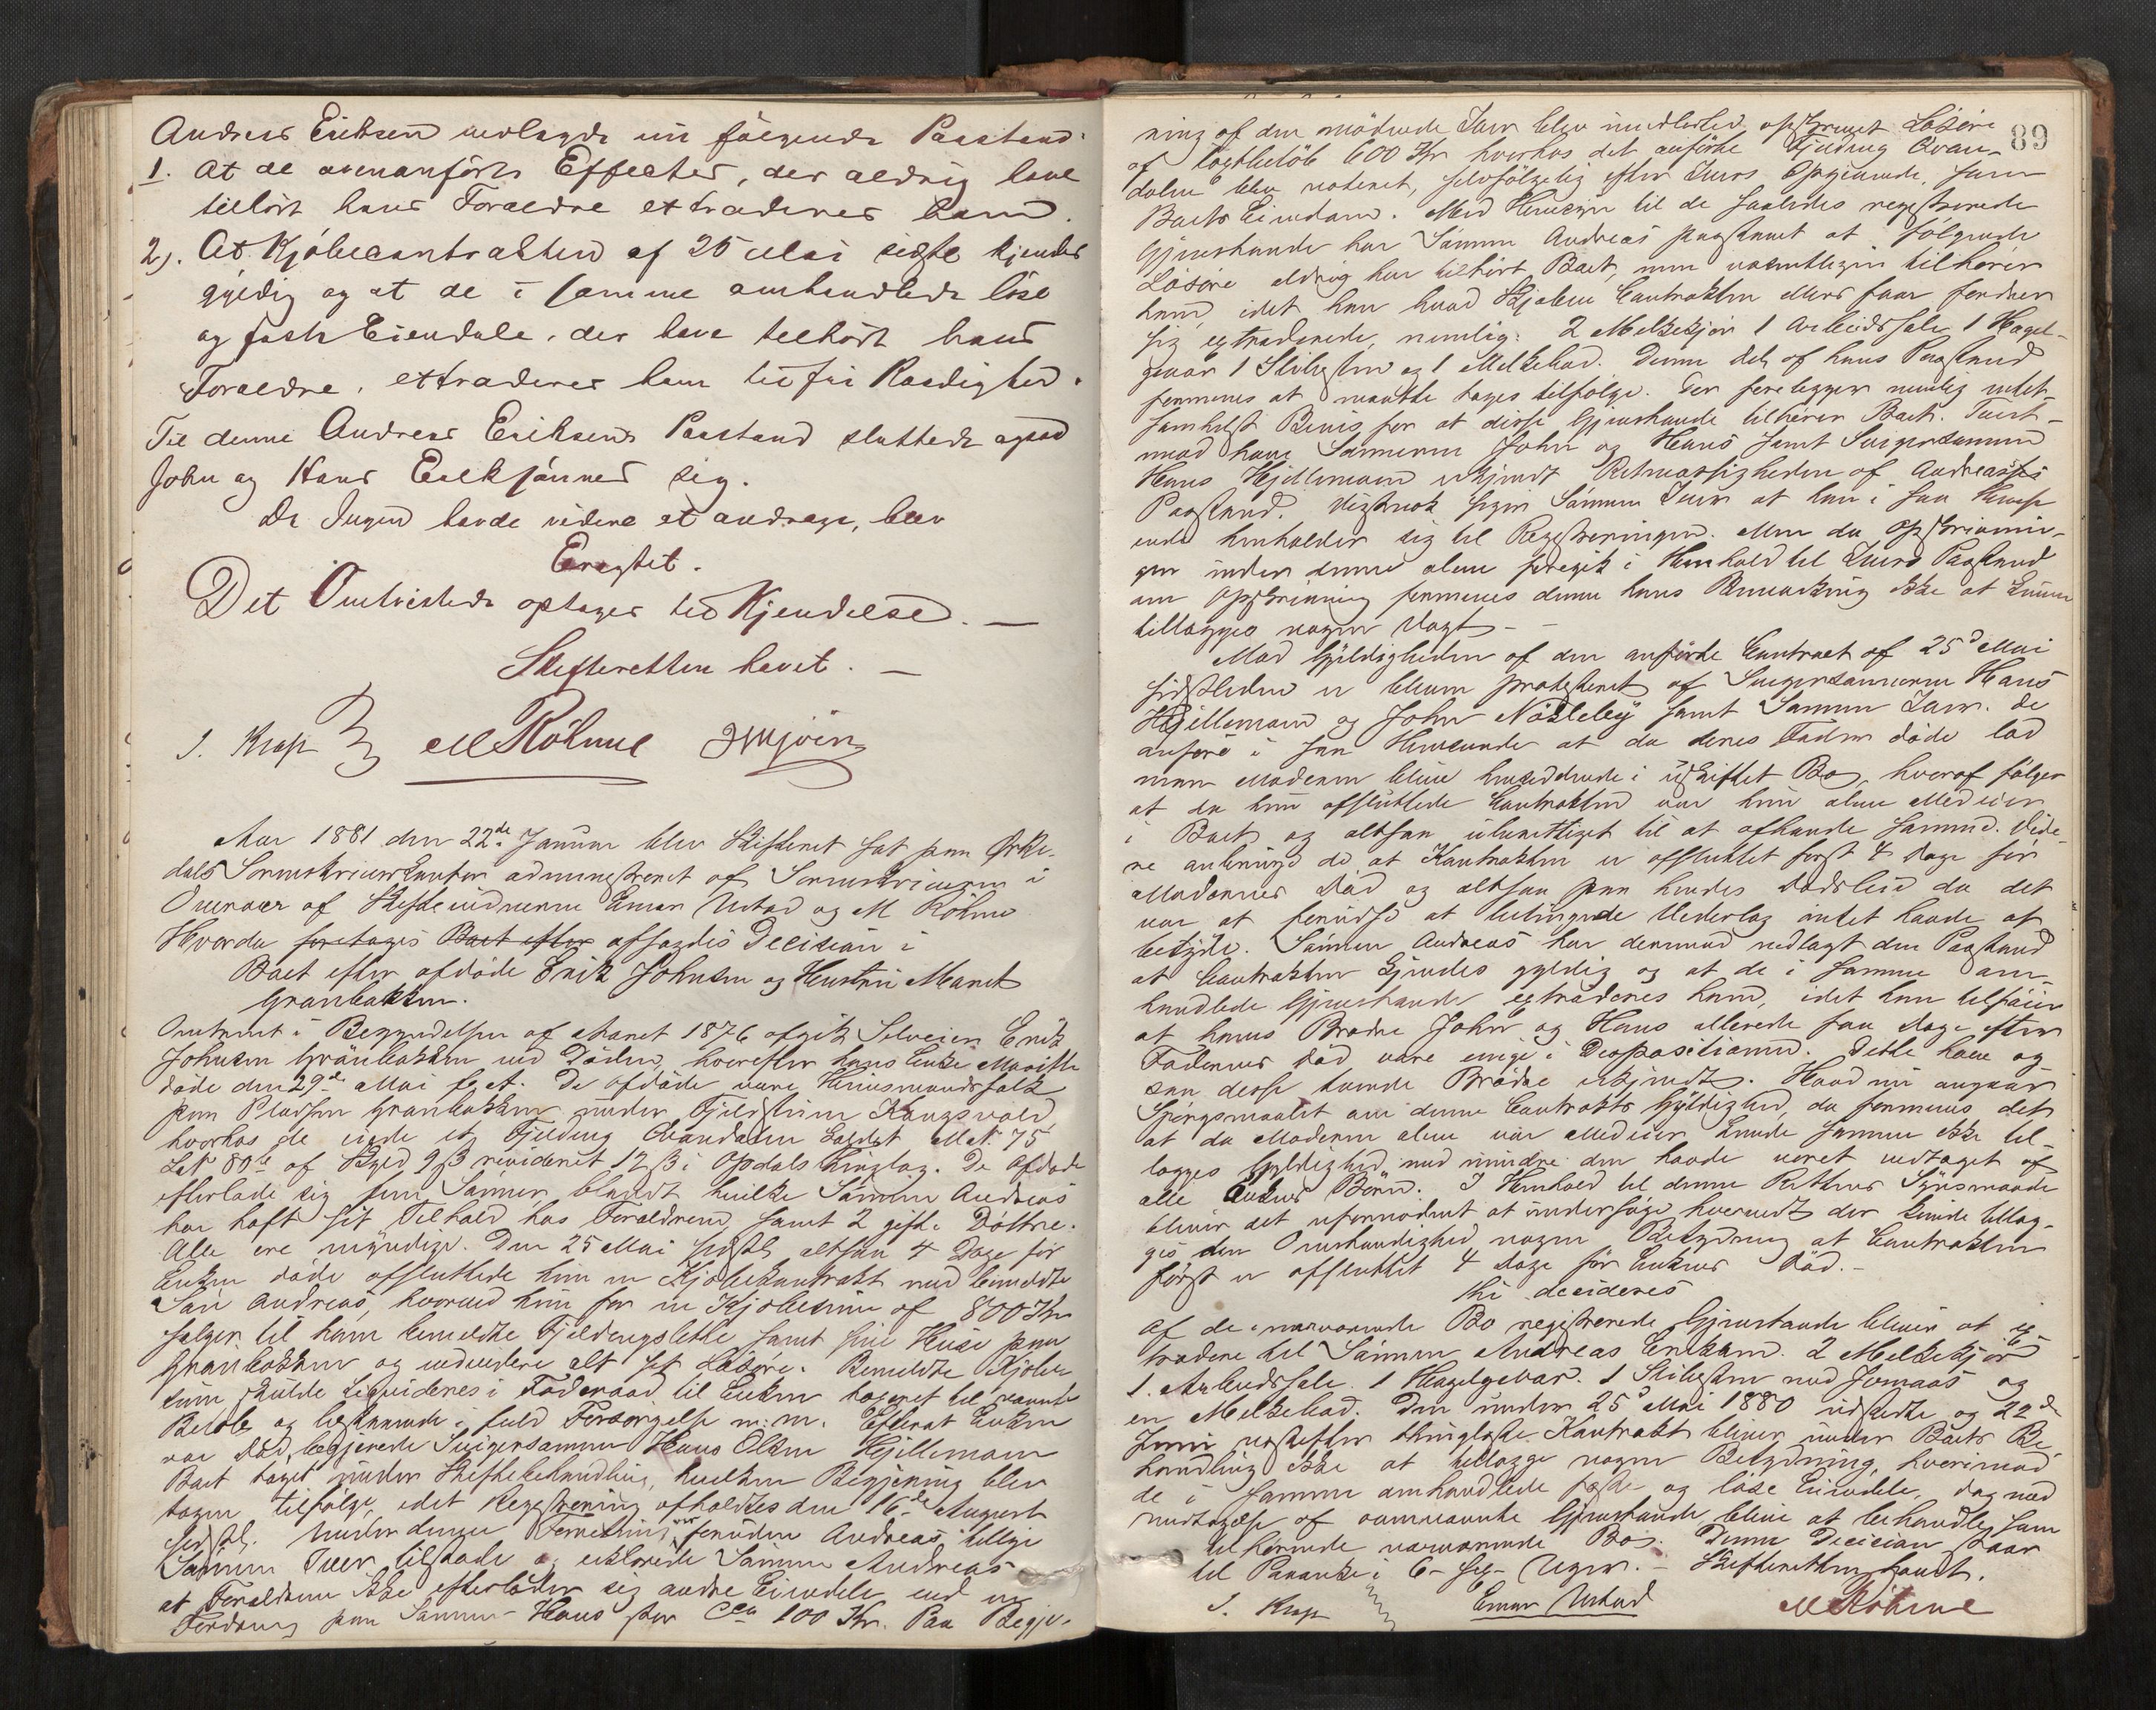 Andreas Eriksen nedlagde nu følgende Paastand:
1. At de ovenanførte Effecter, der aldrig have
tilhørt hans Forældre extraderes ham.
2). At Kjøbecontrakten af 25 Mai sidstl kjendes
gyldig og at de i samme omhandlede løse
og faste Eiendele, der have tilhørt hans
Forældre, extraderes ham til fri Raadighed.
Til denne Andreas Eriksens Paastand sluttede ogsaa
John og Hans Erikssønner sig.
Da Ingen havde videre at andrage, blev
Eragtet.
Det Omtvistede optages til Kjendelse. —
Skifteretten hævet. —
I. Krag M Röhme
Aar 1881 den 22de Januar blev Skifteret sat paa Orke-
dals Sorenskriverkontor administreret af Sorenskriveren i
Overvær af Skiftevidnerne Einar Ustad og M Röhme
Hvorda foretages Boet efter afsagdes Decision i
Boet efter afdøde Erik Johnsen og Hustru Marit
Granbakken.
Omtrent i Begyndelsen af Aaret 1876 afgik Selveier Erik
Johnsen Granbakken ved Døden, hvorefter hans Enke Marit
døde den 29de Mai f. A. De afdøde vare Huusmandsfolk
paa Pladsen Granbakken under Fjeldstuen Kongsvold,
hvorhos de eiede et Fjelding Aamdalen kaldet M.N. 75
L.N. 80 af Skyld 9 β revideret 12 β i Opdals Thinglag. De afdøde
efterlode sig fem Sønner, blandt hvilke Sønnen Andreas
har havt sit Tilhold hos Forældrene, samt 2 gifte Døttre.
Alle ere myndige. Den 25 Mai sidstl, altsaa 4 Dage før
Enken døde afsluttede hun en Kjøbekontrakt med bemeldte
Søn Andreas, hvorved hun for en Kjøbesum af 800 Kr
sælger til ham bemeldte Fjeldengslette samt sine Huse paa
Granbakken og endvidere alt sit Løsøre. Bemeldte Kjøbe-
sum skulde liqvideres i Føderaad til Enken taxeret til nævnte
Beløb og bestaaende i fuld Forsørgelse m: m. Efterat Enken
var død, begjærede Svigersønnen Hans Olsen Hjellemoen
Boet taget under Skiftebehandling, hvilken Begjæring blev
tagen tilfølge, idet Registrering afholdtes den 16de August
sidstl. Under denne Forretning var foruden Andreas tillige
Sønnen Iver tilstede og erklærede Sønnen Andreas
at Forældrene ikke efterlader sig andre Eiendele end en
Fordring paa Sønnen Hans stor Cca 100 Kr. Paa Begjæ-
89
ring af den mødende Iver blev imidlertid opskrevet Løsøre
af Taxtbeløb 600 Kr hvorhos det anførte Fjelding Aaam-
dalen blev noteret, selvfølgelig efter Ivers Opgivende, som
Boets Eiendom. Med Hensyn til de saaledes registrerede
Gjenstande har Sønnen Andreas paastaaet at følgende
Løsøre aldrig har tilhørt Boet, men uomtvistelig tilhører
ham, idet han hvad Kjøbecontrakten ellers faar fordrer
sig extraderede, nemlig: 2 Melkekjør 1 Arbeidssele 1 Hagel-
gevær 1 Stihesten og 1 Melkebod. Denne del af hans Paastand
formenes at maatte tages tilfølge. Der forelægger nemlig intet-
somhelst Beviis for at disse Gjenstande tilhører Boet. Tvert-
imod have Sønnerne John og Hans samt Svigersønnen
Hans Hjellemoen erkjendt Retmæssigheden af Andreases
Paastand. Vistnok siger Sønnen Iver at han i saa Hense-
ende henholder sig til Registreringen. Men da Opskrivnin-
gen under denne alene foregik i Henhold til Ivers Paastand
om Opskrivning formenes denne hans Bemærkning ikke at kunne
tillægges nogen Vægt. —
Mod Gyldigheden af den anførte Contract af 25de Mai
sidstleden er bleven protesteret af Svigersønnerne Hans
Hjellemoen og John Næsteby samt Sønnen Iver. De
anføre i saa Henseende at da deres Fader døde lod
man Moderen blive hensiddende i uskiftet Bo, hvoraf følger
at da hun afsluttede Contrakten var hun alene Medeier
i Boet og altsaa uberettiget til at afhænde samme. Vide-
re anbringe de at Kontrakten er afsluttet først 4 Dage før
Moderens Død og altsaa paa hendes Dødsleie da det
var at forudse at betingede Vederlag intet havde at
betyde. Sønnen Andreas har derimod nedlagt den Paastand
at Contrakten kjendes gyldig og at de i samme om-
handlede Gjenstande extraderes ham, idet han tilføier
at hans Brødre John og Hans allerede faa Dage efter
Faderens Død vare enige i Dispositionen. Dette have og-
saa disse tvende Brødre erkjendt. Hvad nu angaar
Spørgsmaalet om denne Contrakts Gyldighed, da formenes det
at da Moderen alene var Medeier kunde samme ikke til-
lægges Gyldighed med mindre den havde været vedtaget af
alle Enkens Børn. I Henhold til denne Rettens Synsmaade
bliver det ufornødent at undersøge hvorvidt der kunde tillæg-
ges den Omstændighed nogen Betydning at Contrakten
først er afsluttet 4 Dage før Enkens Død. —
Thi decideres
Af de i nærværende Bo registrerede Gjenstande bliver at ex-
tradere til Sønnen Andreas Eriksen. 2 Melkekjør
1. Arbeidssele. 1 Hagelgevær. 1 Stihesten med Jernaas og
en Melkebod. Den under 25de Mai 1880 udstedte og 22de
Juni næstefter thinglæste Kontrakt bliver under Boets Be-
handling ikke at tillægge nogen Betydning, hvorimod
de i samme omhandlede faste og løse Eiendele, dog med
Undtagelse af ovennævnte Gjenstande, blive at behandle som
tilhørende nærværende Bo. Denne Decision staar
til Paaanke i 6 – sex – Uger. — Skifteretten hævet.
I. Krag Einar Ustad M Röhme